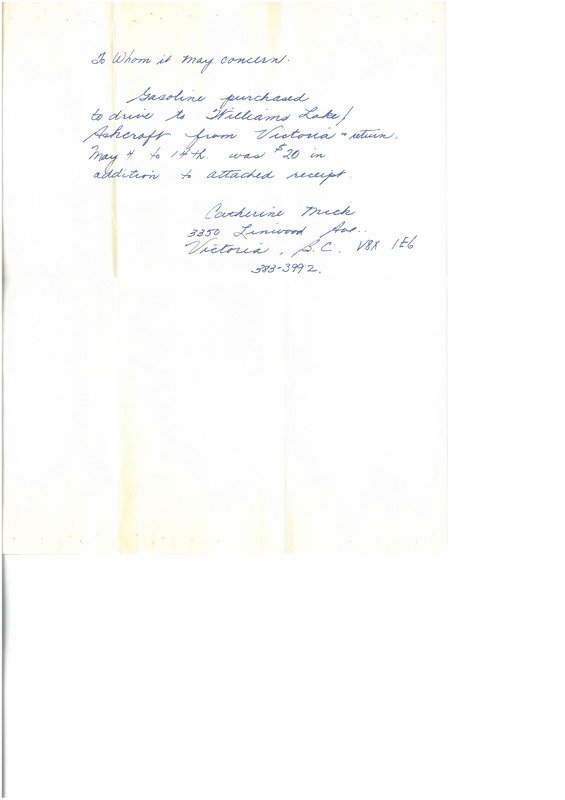 To Whom it may concern.
Gasoline purchased
to drive to Williams Lake/
Ashcroft from Victoria & return.
May 4 to 14th. was $20 in
addition to attached receipt.
Catherine Mick
3350 Linwood Ave..
Victoria, B.C. V8X 1E6
383-3992.